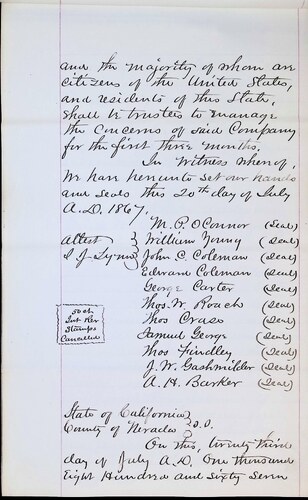 and the majority of whom are
citizens of the United States,
and residents of this State,
shall be trustees to manage
the Concerns of said Company
for the first three months.
In Witness whereof,
We have hereunto set our hands
and seals this 20th day of July
A.D. 1867.
M. P. O'Connor (Seal)
Attest } William Young (Seal)
John C. Coleman (Seal)
Edward Coleman (Seal)
George Carter (Seal)
Thos. W. Roach (Seal)
50 cts
Int Rev
Stamps
Cancelled
Thos Crase (Seal)
Samuel George (Seal)
Thos Findley (Seal)
J. W. Gashwiller (Seal)
A. H. Barker (Seal)
State of California
County of Nevada } S.S.
On this, twenty third
day of July A.D. One thousand
Eight Hundred and Sixty Seven